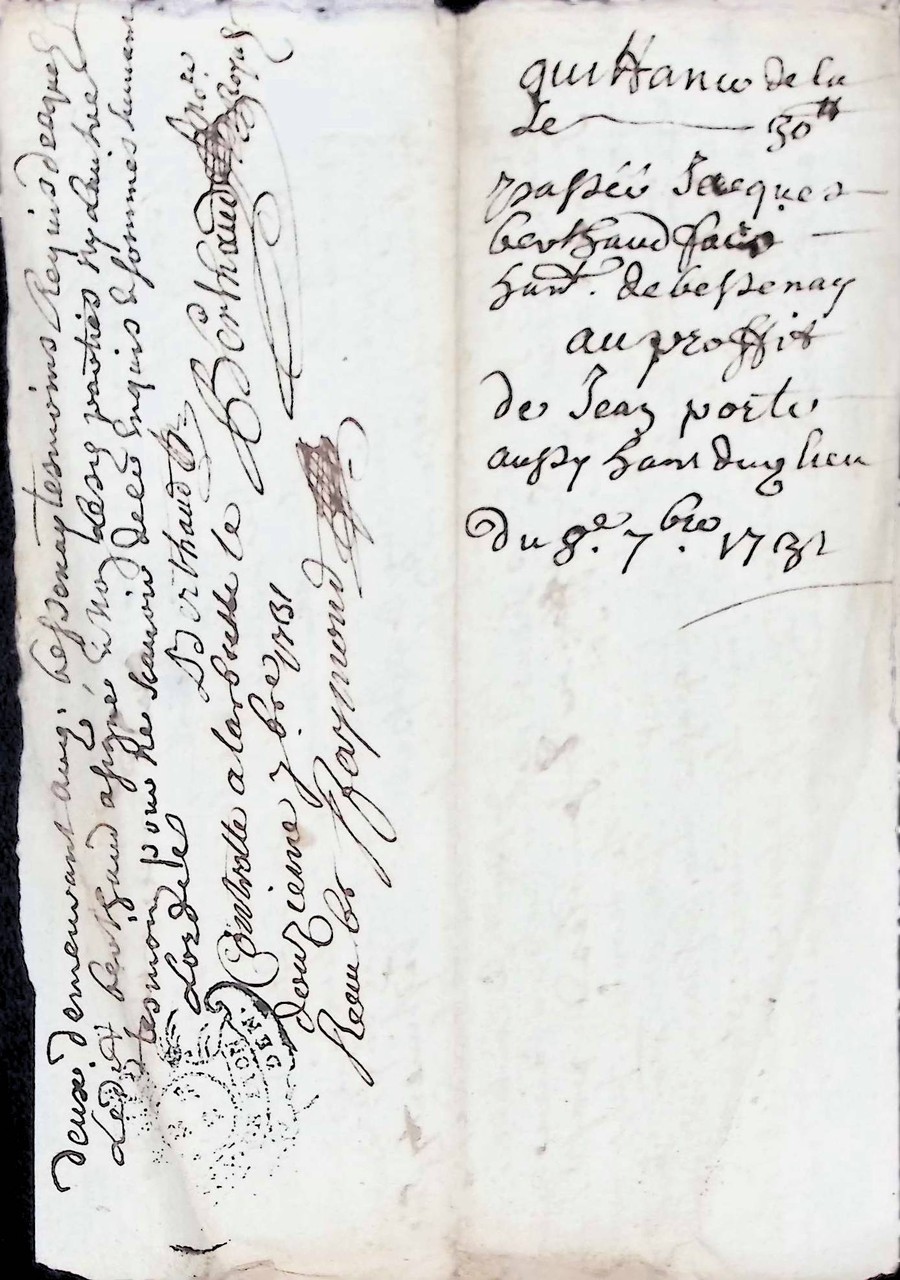 deux demeurant aud. bessenay tesmoins Requis desquels
Ledit berthaud a signé Et Non Lesd. parties Ny Lautre
tesmoin pour Ne scavoir de ce Enquis & sommes suivant
Lord.ce
Berthaud
Berthaud
Controlle a larbresle le
douzieme 7bre 1731
Receu
Raymond
quittance de la
de 30tt
passée Jacques
berthaud
hant. de bessenay
au proffit
de Jean porte
aussy hant dud. lieu
Du 9e. 7.bre 1731